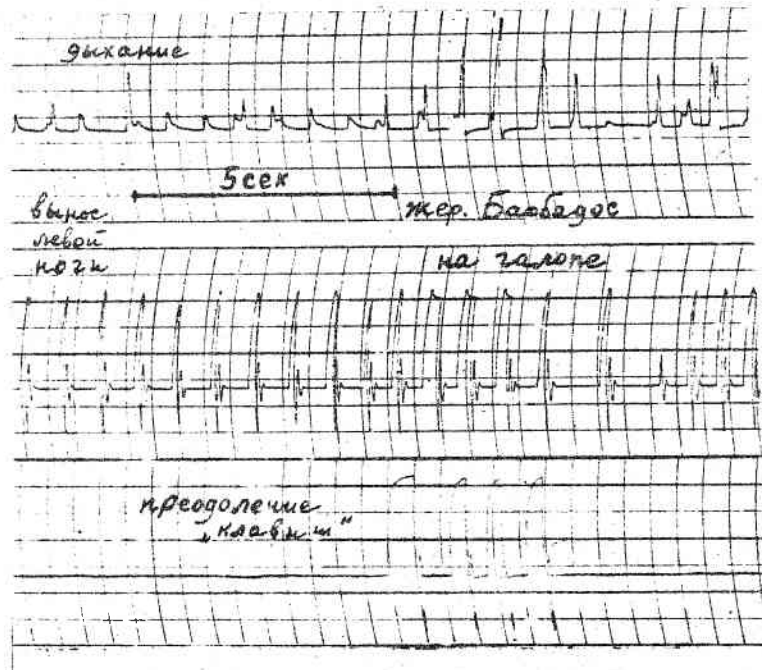 дыхание
5 сек
вынос
левой
ноги
жер. Барбадос
на галопе
преодоление
„клавиш"